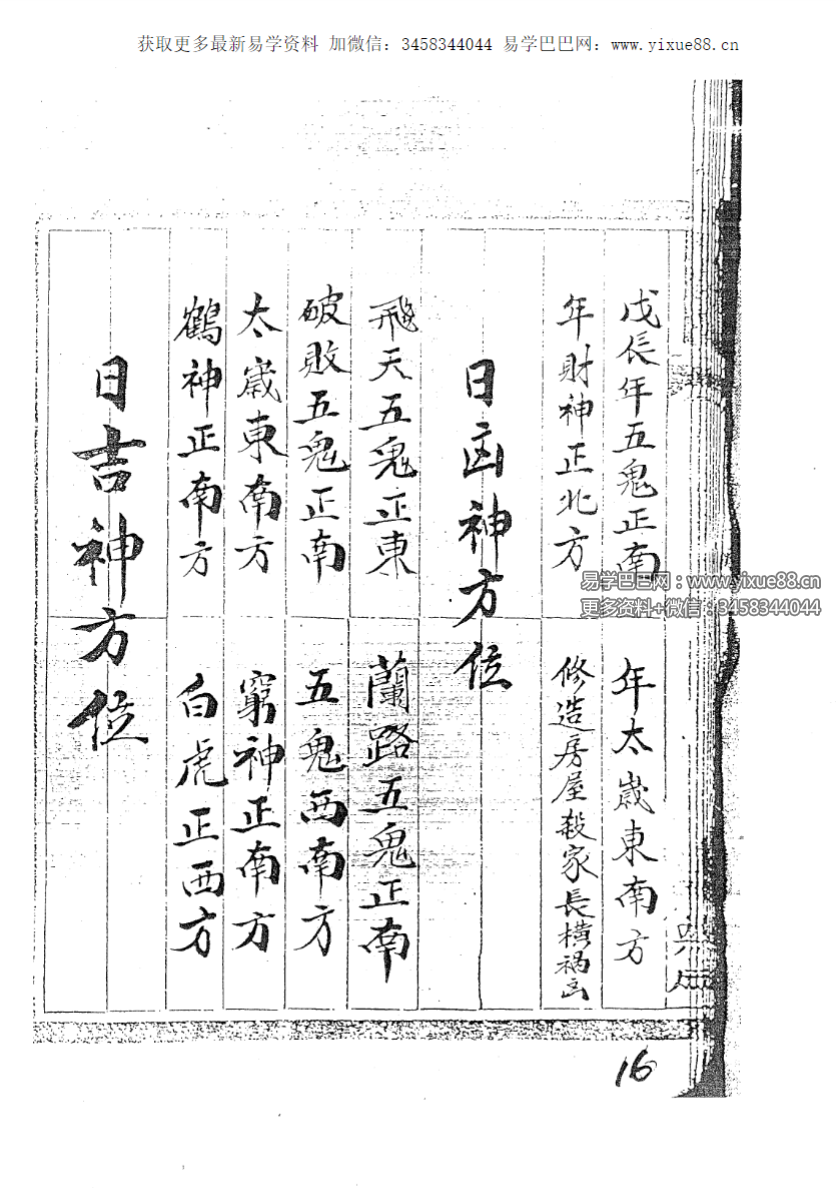 获取更多最新易学资料 加微信：3458344044 易学巴巴网：www.yixue88.cn
戊辰年五鬼正南 年太歲東南方
年財神正北方 修造房屋殺家長橫禍凶
日凶神方位
飛天五鬼正東 蘭路五鬼正南
破敗五鬼正南 五鬼西南方
太歲東南方 窮神正南方
鶴神正南方 白虎正西方
日吉神方位
易学巴巴网：www.yixue88.cn
更多资料+微信：3458344044
16